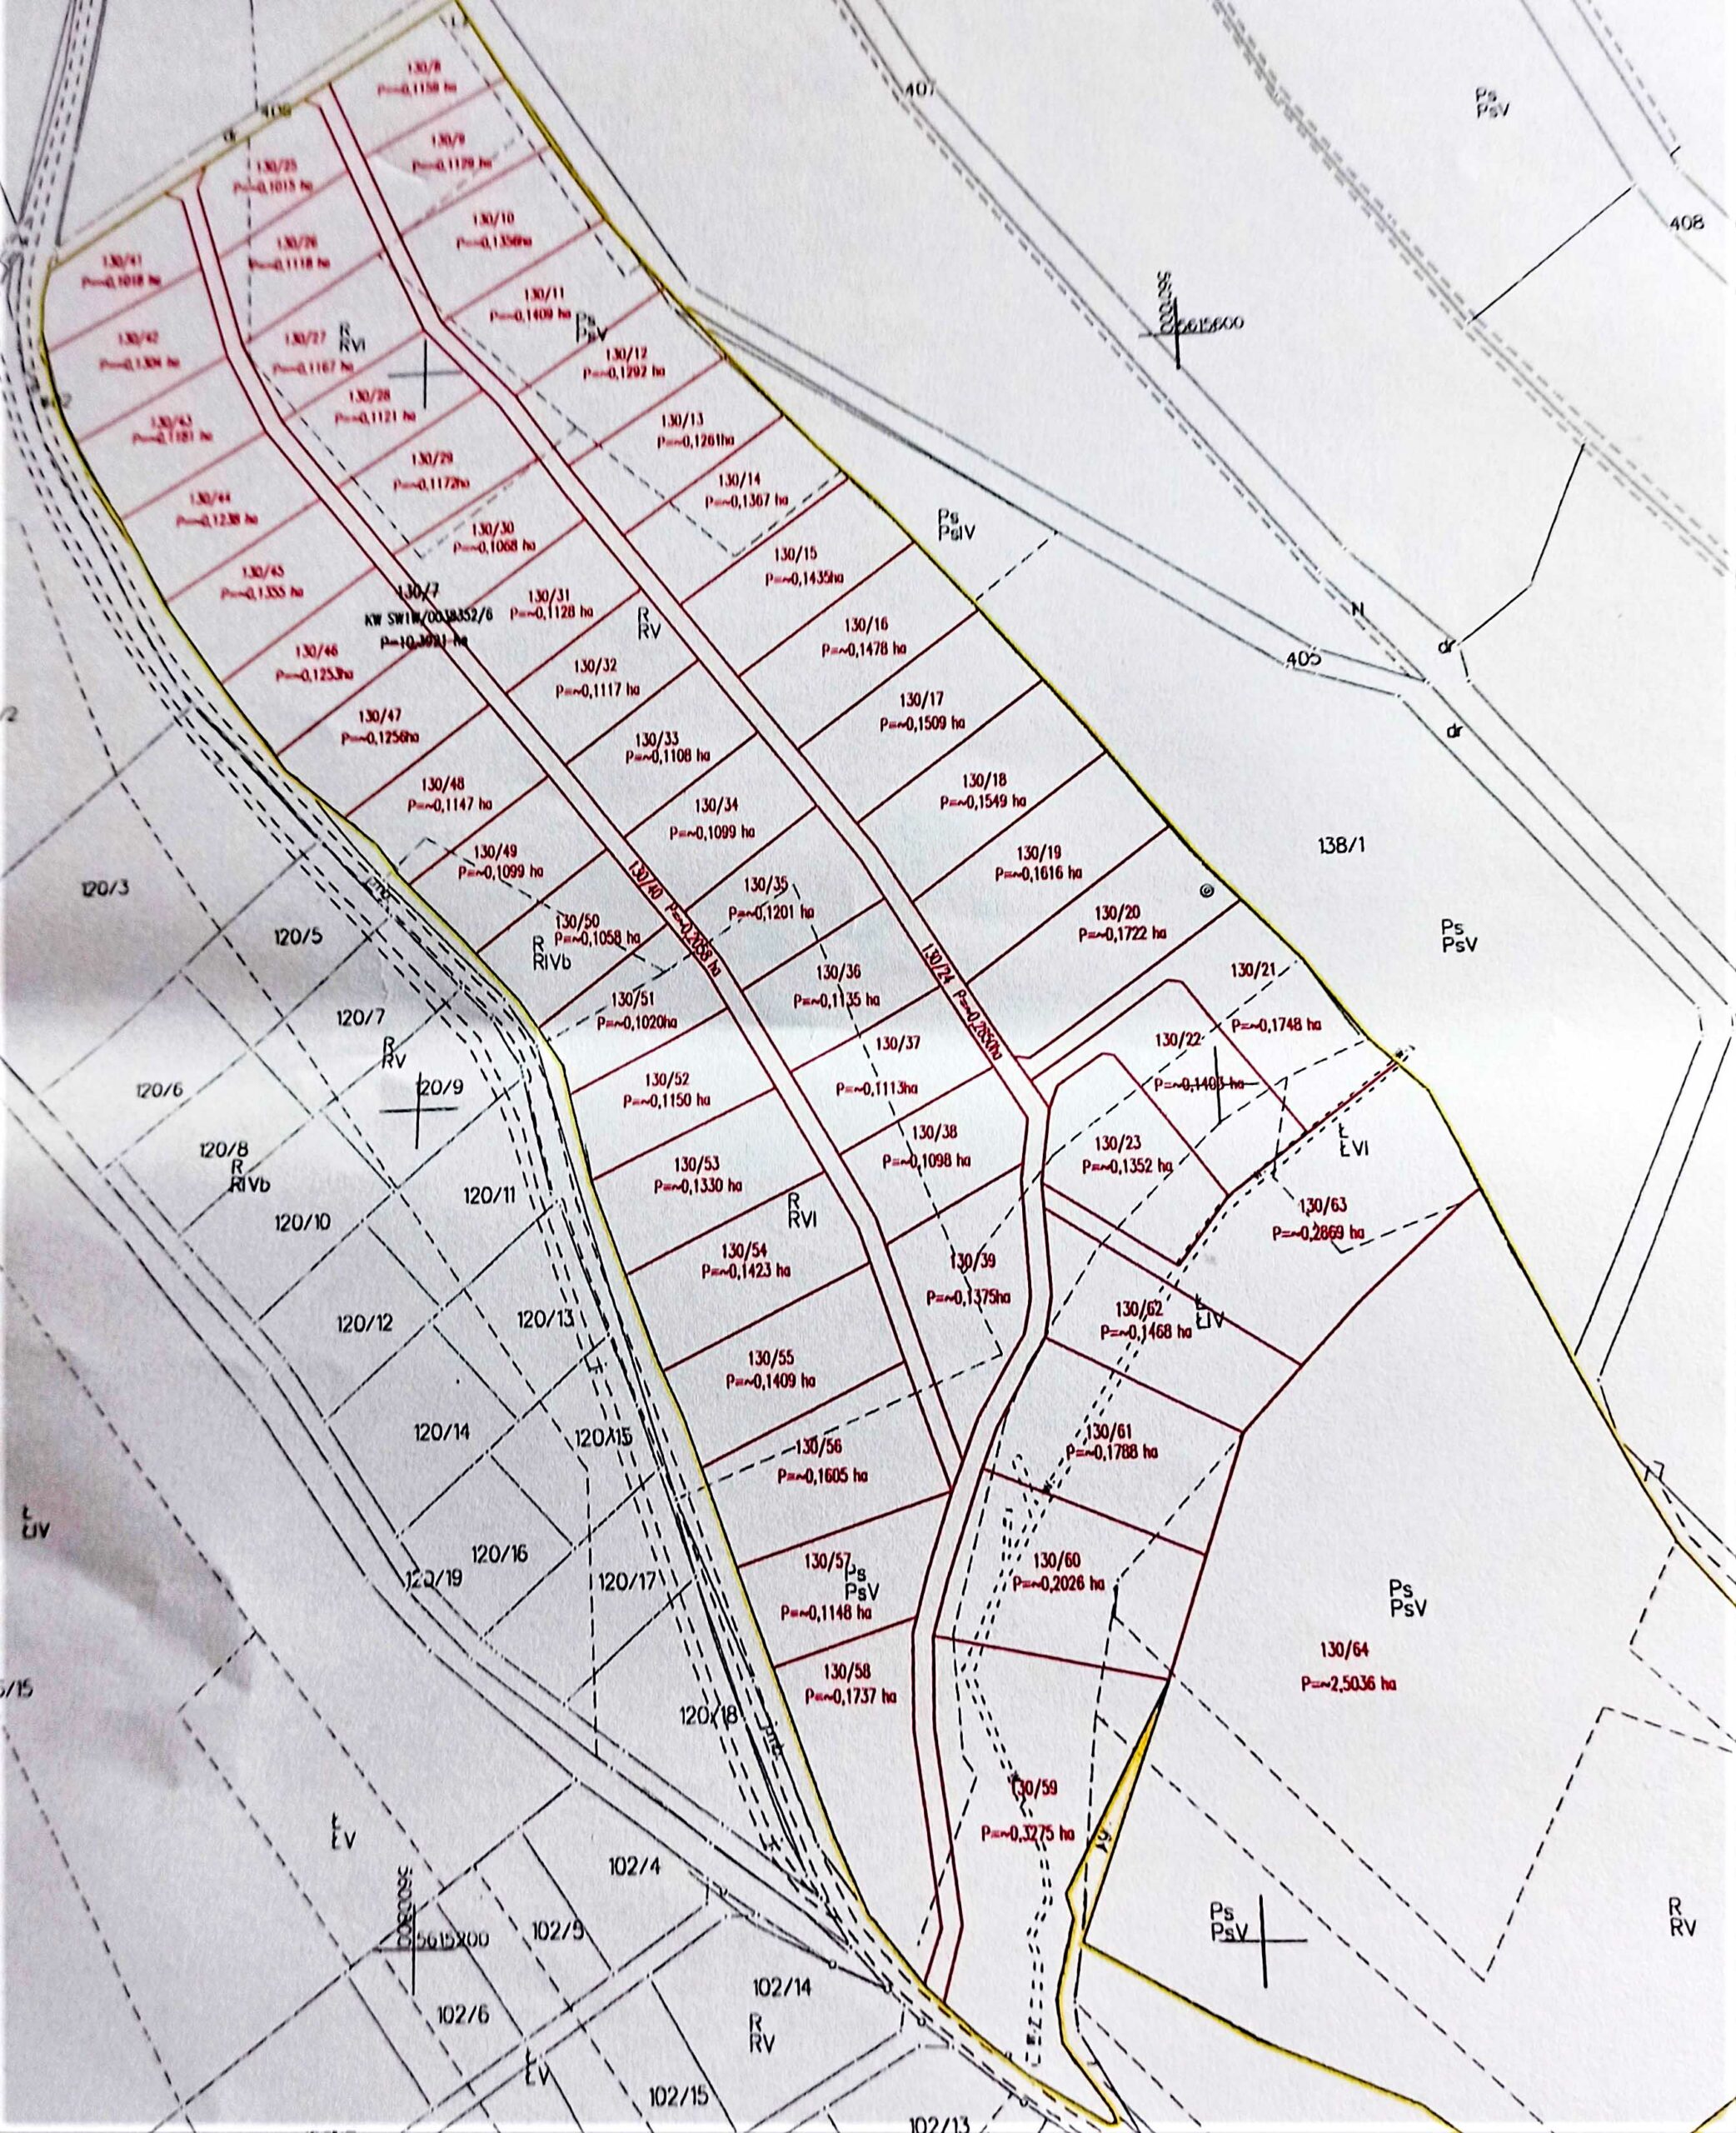 130/8
P=~0,1158 ha
407
Ps
PsV
406
dr
130/9
P=~0,1129 ha
130/25
P=~0,1015 ha
130/10
P=~0,1356ha
408
130/26
P=~0,1118 ha
130/41
P=~0,1018 ha
130/11
P=~0,1409 ha
Ps
PsV
5601000
5615600
130/42
P=~0,1304 ha
130/27
P=~0,1167 ha
R
RVI
130/12
P=~0,1292 ha
130/28
P=~0,1121 ha
130/43
P=~0,1181 ha
130/13
P=~0,1261ha
130/29
P=~0,1172ha
130/14
P=~0,1367 ha
130/44
P=~0,1238 ha
130/30
P=~0,1068 ha
Ps
PsIV
130/15
P=~0,1435ha
130/45
P=~0,1355 ha
130/7
KW SW1W/0038352/6
P=10,3921 ha
130/31
P=~0,1128 ha
R
RV
130/16
P=~0,1478 ha
N
dr
405
130/46
P=~0,1253ha
130/32
P=~0,1117 ha
130/17
P=~0,1509 ha
dr
130/47
P=~0,1256ha
130/33
P=~0,1108 ha
130/18
P=~0,1549 ha
130/48
P=~0,1147 ha
130/34
P=~0,1099 ha
130/19
P=~0,1616 ha
138/1
130/49
P=~0,1099 ha
130/40 P=~0,2058 ha
130/35
P=~0,1201 ha
120/3
130/20
P=~0,1722 ha
120/5
130/50
P=~0,1058 ha
R
RIVb
Ps
PsV
130/24 P=~0,2850ha
130/36
P=~0,1135 ha
130/21
P=~0,1748 ha
120/7
R
RV
130/51
P=~0,1020ha
130/37
P=~0,1113ha
130/22
P=~0,1403 ha
120/6
120/9
130/52
P=~0,1150 ha
130/38
P=~0,1098 ha
130/23
P=~0,1352 ha
Ł
ŁVI
120/8
R
RIVb
120/11
130/53
P=~0,1330 ha
R
RVI
130/63
P=~0,2869 ha
120/10
130/54
P=~0,1423 ha
130/39
P=~0,1375ha
120/12
120/13
130/62
P=~0,1468 ha
Ł
ŁIV
130/55
P=~0,1409 ha
120/14
120/15
130/56
P=~0,1605 ha
130/61
P=~0,1788 ha
Ł
ŁIV
120/16
120/19
120/17
130/57
P=~0,1148 ha
Ps
PsV
130/60
P=~0,2026 ha
Ps
PsV
130/64
P=~2,5036 ha
130/58
P=~0,1737 ha
120/18
130/59
P=~0,3275 ha
Ł
ŁV
102/4
5600800
5615200
102/5
Ps
PsV
R
RV
102/14
102/6
R
RV
Ł
ŁV
102/15
102/13